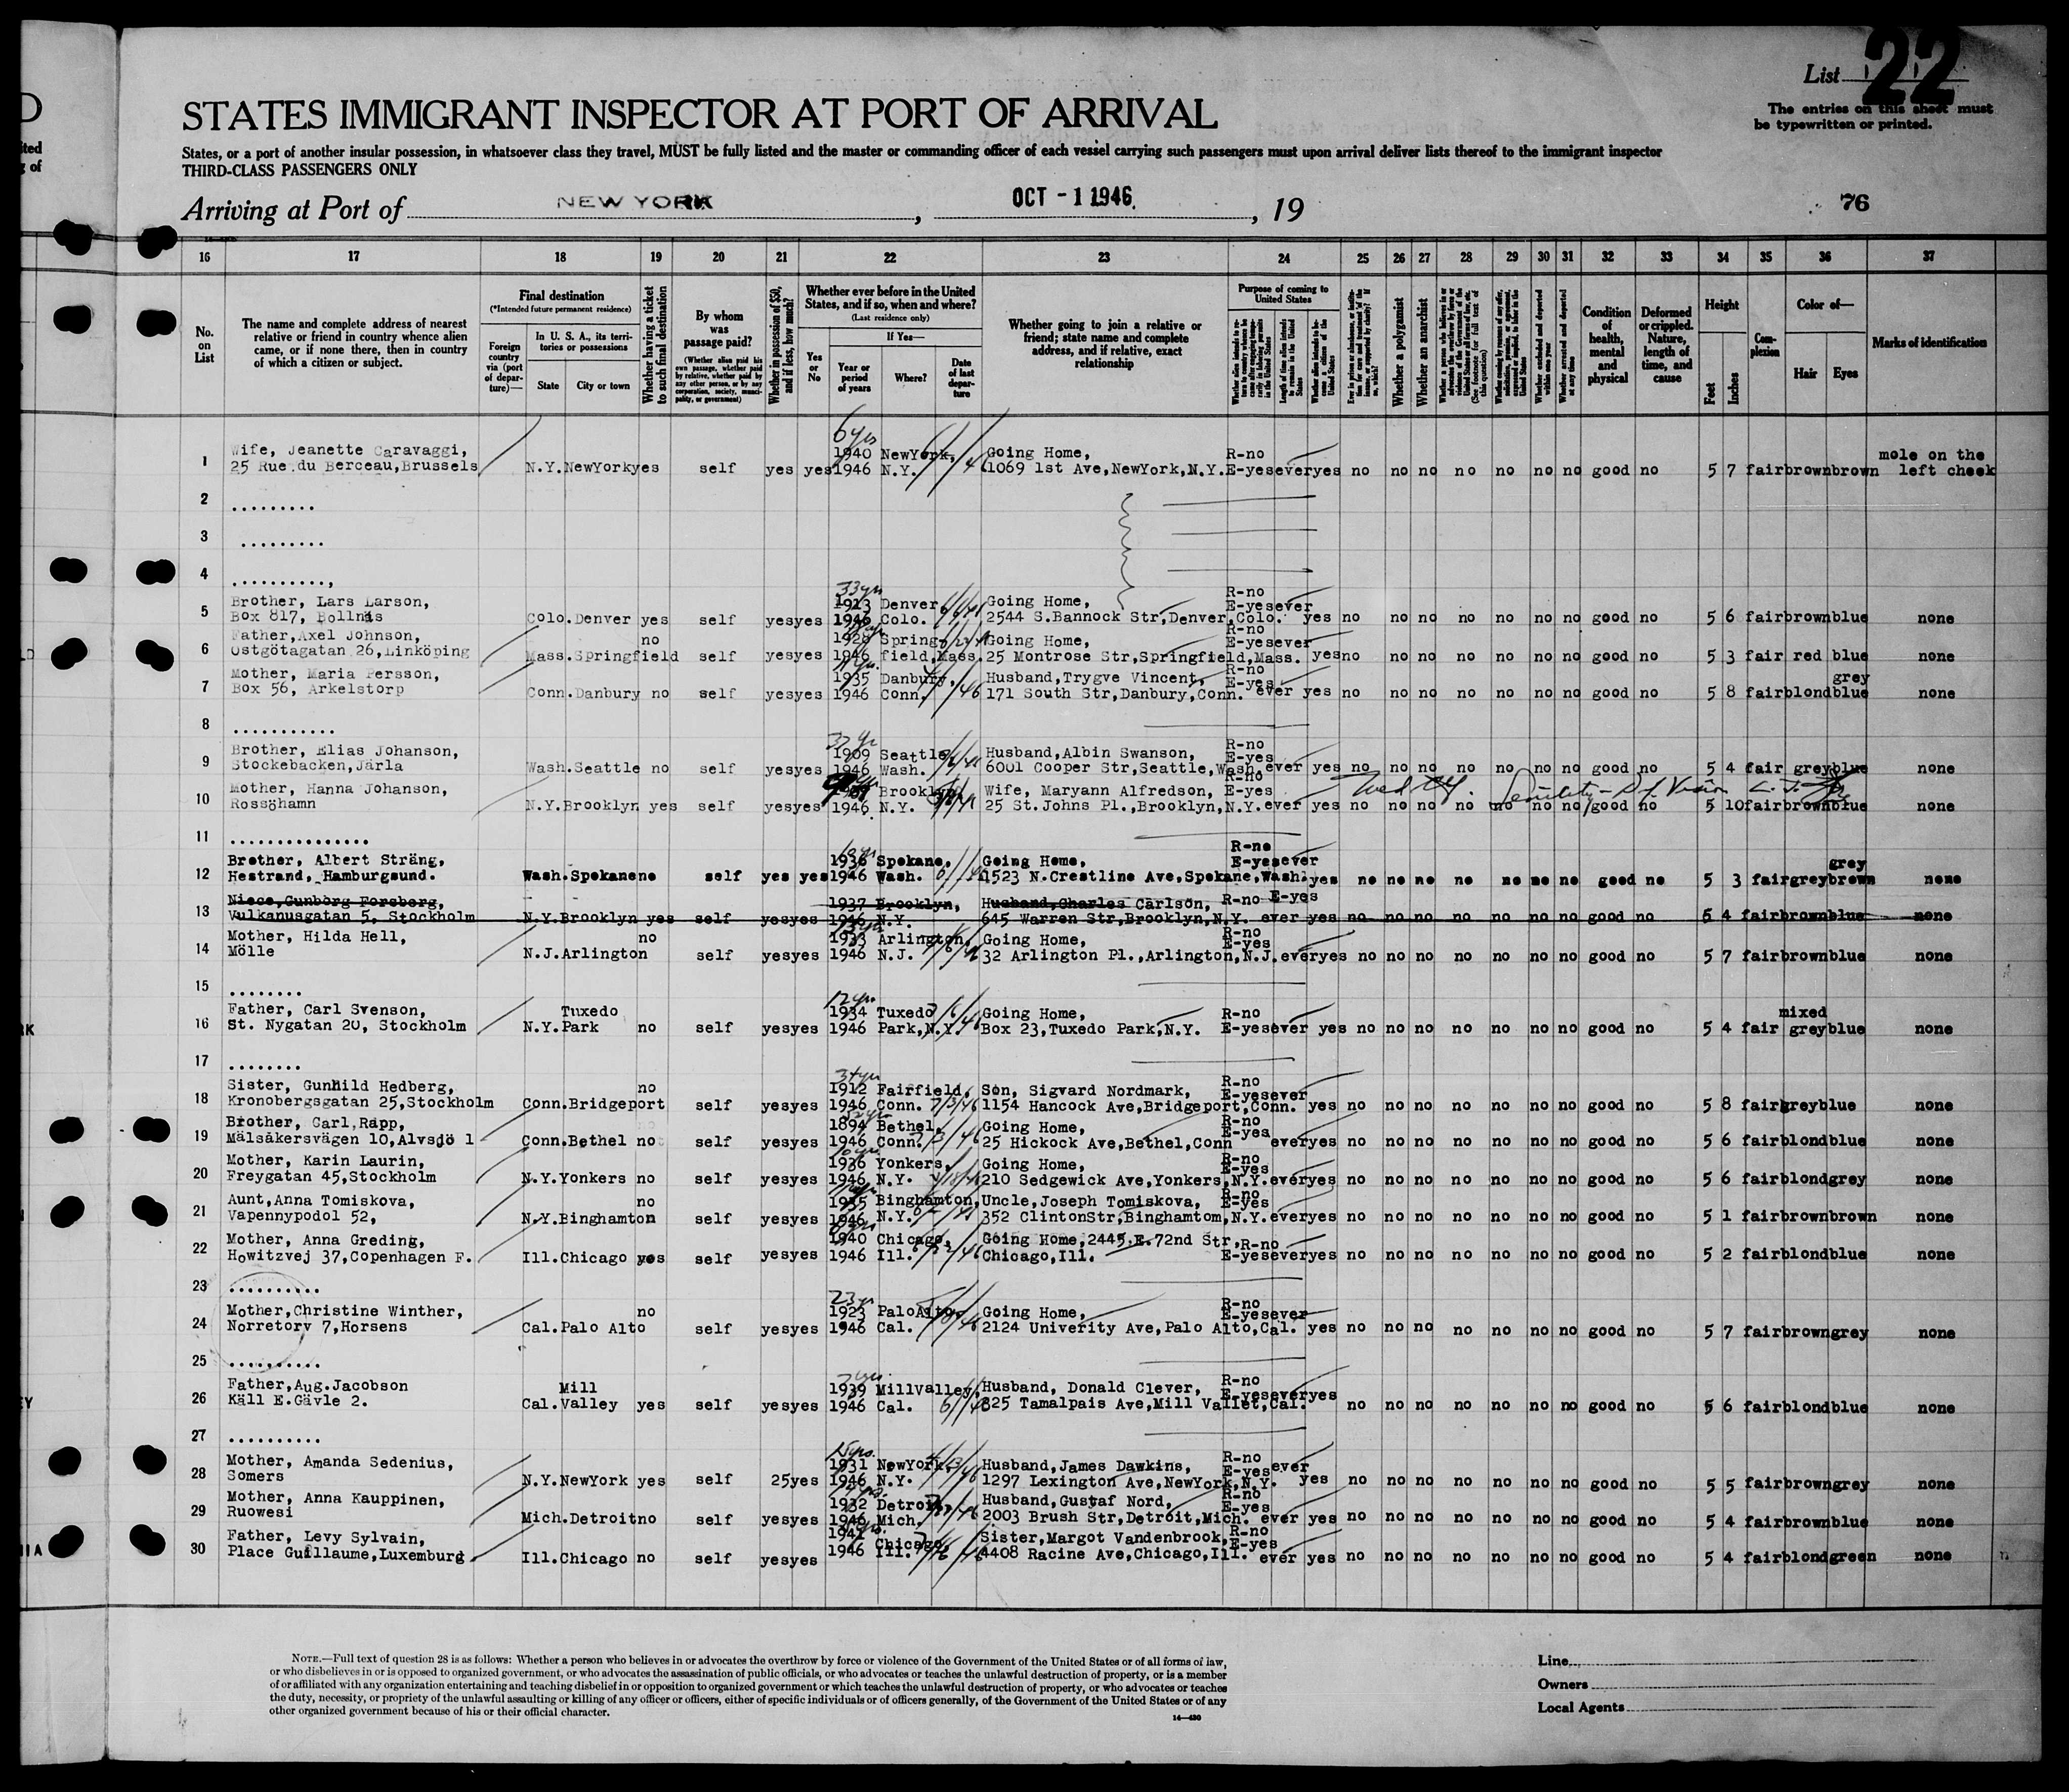 List 22
The entries on this sheet must
be typewritten or printed.
STATES IMMIGRANT INSPECTOR AT PORT OF ARRIVAL
States, or a port of another insular possession, in whatsoever class they travel, MUST be fully listed and the master or commanding officer of each vessel carrying such passengers must upon arrival deliver lists thereof to the immigrant inspector
THIRD-CLASS PASSENGERS ONLY
Arriving at Port of NEW YORK, OCT - 1 1946, 19 76
16 17 18 19 20 21 22 23 24 25 26 27 28 29 30 31 32 33 34 35 36 37
No. on List
The name and complete address of nearest relative or friend in country whence alien came, or if none there, then in country of which a citizen or subject.
Final destination
(*Intended future permanent residence)
Foreign country via (port of departure)—
In U. S. A., its territories or possessions
State City or town
Whether having a ticket to such final destination
By whom was passage paid?
(Whether alien paid his own passage, whether paid by relative, whether paid by any other person, or by any corporation, society, municipality, or government)
Whether in possession of $50, and if less, how much?
Whether ever before in the United States, and if so, when and where?
(Last residence only)
Yes or No
If Yes—
Year or period of years Where? Date of last departure
Whether going to join a relative or friend; state name and complete address, and if relative, exact relationship
Purpose of coming to United States
Whether a polygamist
Whether an anarchist
Condition of health, mental and physical
Deformed or crippled. Nature, length of time, and cause
Height
Feet Inches
Complexion
Color of—
Hair Eyes
Marks of identification
6 yrs
1 Wife, Jeanette Caravaggi, 1940 NewYork, Going Home, R-no mole on the
25 Rue du Berceau,Brussels N.Y.NewYork yes self yes yes 1946 N.Y. 1069 1st Ave,NewYork,N.Y. E-yes ever yes no no no no no no no good no 5 7 fair brown brown left cheek
2 .........
3 .........
4 ..........,
33yr
5 Brother, Lars Larson, 1913 Denver Going Home, R-no
Box 817, Bollnäs Colo.Denver yes self yes yes 1946 Colo. 2544 S.Bannock Str,Denver,Colo. E-yes ever yes no no no no no no no good no 5 6 fair brown blue none
6 Father,Axel Johnson, no 1928 Spring- Going Home, R-no
Ostgötagatan 26,Linköping Mass.Springfield self yes yes 1946 field,Mass. 25 Montrose Str,Springfield,Mass. E-yes ever yes no no no no no no no good no 5 3 fair red blue none
7 Mother, Maria Persson, 1935 Danbury, Husband,Trygve Vincent, R-no grey
Box 56, Arkelstorp Conn.Danbury no self yes yes 1946 Conn. 171 South Str,Danbury,Conn. E-yes ever yes no no no no no no no good no 5 8 fair blond blue none
8 ...........
37 yr
9 Brother, Elias Johanson, 1909 Seattle Husband,Albin Swanson, R-no
Stockebacken,Järla Wash.Seattle no self yes yes 1946 Wash. 6001 Cooper Str,Seattle,Wash. E-yes ever yes no no no no no no no good no 5 4 fair grey blue none
10 Mother, Hanna Johanson, Brooklyn Wife, Maryann Alfredson, R-no
Rossöhamn N.Y.Brooklyn yes self yes yes 1946 N.Y. 25 St.Johns Pl.,Brooklyn,N.Y. E-yes ever yes no no no no no no no good no 5 10 fair brown blue none
11 ...............
10yr
12 Brother, Albert Sträng, 1936 Spokane, Going Home, R-no grey
Hestrand, Hamburgsund. Wash.Spokane no self yes yes 1946 Wash. 1523 N.Crestline Ave,Spokane,Wash. E-yes ever yes no no no no no no no good no 5 3 fair grey brown none
13 Niece,Gunborg Forsberg, 1937 Brooklyn, Husband,Charles Carlson, R-no E-yes
Vulkanusgatan 5, Stockholm N.Y.Brooklyn yes self yes yes 1946 N.Y. 645 Warren Str,Brooklyn,N.Y. ever yes no no no no no no no good no 5 4 fair brown blue none
13yr
14 Mother, Hilda Hell, no 1933 Arlington, Going Home, R-no
Mölle N.J.Arlington self yes yes 1946 N.J. 32 Arlington Pl.,Arlington,N.J. E-yes ever yes no no no no no no no good no 5 7 fair brown blue none
15 ........
12yr
16 Father, Carl Svenson, Tuxedo 1934 Tuxedo Going Home, R-no mixed
St. Nygatan 20, Stockholm N.Y.Park no self yes yes 1946 Park,N.Y. Box 23,Tuxedo Park,N.Y. E-yes ever yes no no no no no no no good no 5 4 fair grey blue none
17 ........
34yr
18 Sister, Gunhild Hedberg, no 1912 Fairfield, Son, Sigvard Nordmark, R-no
Kronobergsgatan 25,Stockholm Conn.Bridgeport self yes yes 1946 Conn. 1154 Hancock Ave,Bridgeport,Conn. E-yes ever yes no no no no no no no good no 5 8 fair grey blue none
52yr
19 Brother, Carl,Rapp, 1894 Bethel, Going Home, R-no
Mälsåkersvägen 10,Alvsjö 1 Conn.Bethel no self yes yes 1946 Conn. 25 Hickock Ave,Bethel,Conn E-yes ever yes no no no no no no no good no 5 6 fair blond blue none
10yr
20 Mother, Karin Laurin, 1936 Yonkers, Going Home, R-no
Freygatan 45,Stockholm N.Y.Yonkers no self yes yes 1946 N.Y. 210 Sedgewick Ave,Yonkers,N.Y. E-yes ever yes no no no no no no no good no 5 6 fair blond grey none
21 Aunt,Anna Tomiskova, no 1935 Binghamton, Uncle,Joseph Tomiskova, R-no
Vapennypodol 52, N.Y.Binghamton self yes yes 1946 N.Y. 352 ClintonStr,Binghamtom,N.Y. E-yes ever yes no no no no no no no good no 5 1 fair brown brown none
22 Mother, Anna Greding, 1940 Chicago, Going Home,2445.E.72nd Str, R-no
Howitzvej 37,Copenhagen F. Ill.Chicago yes self yes yes 1946 Ill. Chicago,Ill. E-yes ever yes no no no no no no no good no 5 2 fair blond blue none
23 ..........
23yr
24 Mother,Christine Winther, no 1923 PaloAlto, Going Home, R-no
Norretorv 7,Horsens Cal.Palo Alto self yes yes 1946 Cal. 2124 Univerity Ave,Palo Alto,Cal. E-yes ever yes no no no no no no no good no 5 7 fair brown grey none
25 ..........
7yrs
26 Father,Aug.Jacobson Mill 1939 MillValley, Husband, Donald Clever, R-no
Käll E.Gävle 2. Cal.Valley yes self yes yes 1946 Cal. 325 Tamalpais Ave,Mill Vallet,Cal. E-yes ever yes no no no no no no no good no 5 6 fair blond blue none
27 ..........
15yrs.
28 Mother, Amanda Sedenius, 1931 NewYork, Husband,James Dawkins, R-no
Somers N.Y.NewYork yes self 25 yes 1946 N.Y. 1297 Lexington Ave,NewYork,N.Y. E-yes ever yes no no no no no no no good no 5 5 fair brown grey none
29 Mother, Anna Kauppinen, 1932 Detroit, Husband,Gustaf Nord, R-no
Ruowesi Mich.Detroit no self yes yes 1946 Mich. 2003 Brush Str,Detroit,Mich. E-yes ever yes no no no no no no no good no 5 4 fair brown blue none
30 Father, Levy Sylvain, 1941 Chicago Sister,Margot Vandenbrook, R-no
Place Guillaume,Luxemburg Ill.Chicago no self yes yes 1946 Ill. 4408 Racine Ave,Chicago,Ill. E-yes ever yes no no no no no no no good no 5 4 fair blond green none
NOTE.—Full text of question 28 is as follows: Whether a person who believes in or advocates the overthrow by force or violence of the Government of the United States or of all forms of law,
or who disbelieves in or is opposed to organized government, or who advocates the assassination of public officials, or who advocates or teaches the unlawful destruction of property, or is a member
of or affiliated with any organization entertaining and teaching disbelief in or opposition to organized government or which teaches the unlawful destruction of property, or who advocates or teaches
the duty, necessity, or propriety of the unlawful assaulting or killing of any officer or officers, either of specific individuals or of officers generally, of the Government of the United States or of any
other organized government because of his or their official character.
14—430
Line
Owners
Local Agents